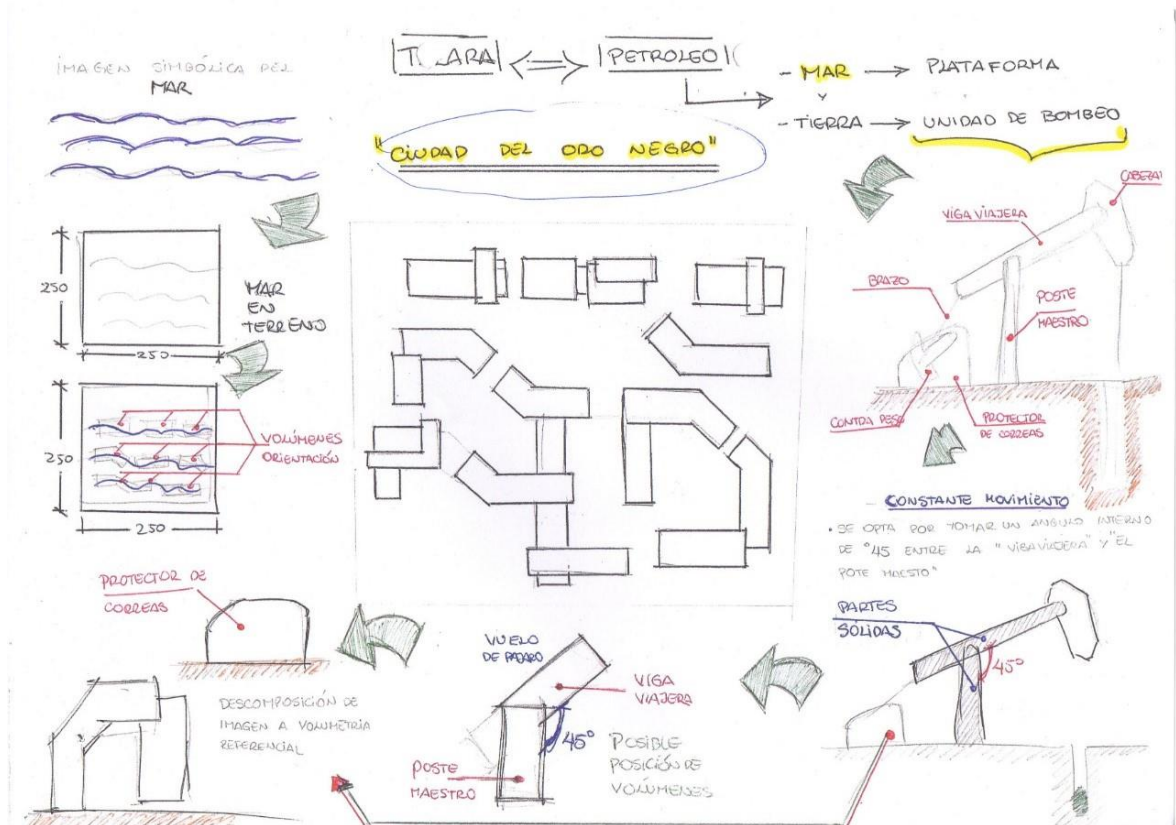 IMAGEN SIMBÓLICA DEL
MAR
T ARA <=> PETROLEO
- MAR → PLATAFORMA
Y
- TIERRA → UNIDAD DE BOMBEO
"CIUDAD DEL ORO NEGRO"
250
250
MAR
EN
TERRENO
250
250
VOLÚMENES
ORIENTACIÓN
CABEZAL
VIGA VIAJERA
BRAZO
POSTE
MAESTRO
CONTRA PESO
PROTECTOR
DE CORREAS
- CONSTANTE MOVIMIENTO
• SE OPTA POR TOMAR UN ANGULO INTERNO
DE °45 ENTRE LA "VIGA VIAJERA" Y "EL
POTE MAESTO"
PARTES
SÓLIDAS
45°
PROTECTOR DE
CORREAS
DESCOMPOSICIÓN DE
IMAGEN A VOLUMETRIA
REFERENCIAL
VUELO
DE PAJARO
VIGA
VIAJERA
45°
POSIBLE
POSICIÓN DE
VOLÚMENES
POSTE
MAESTRO